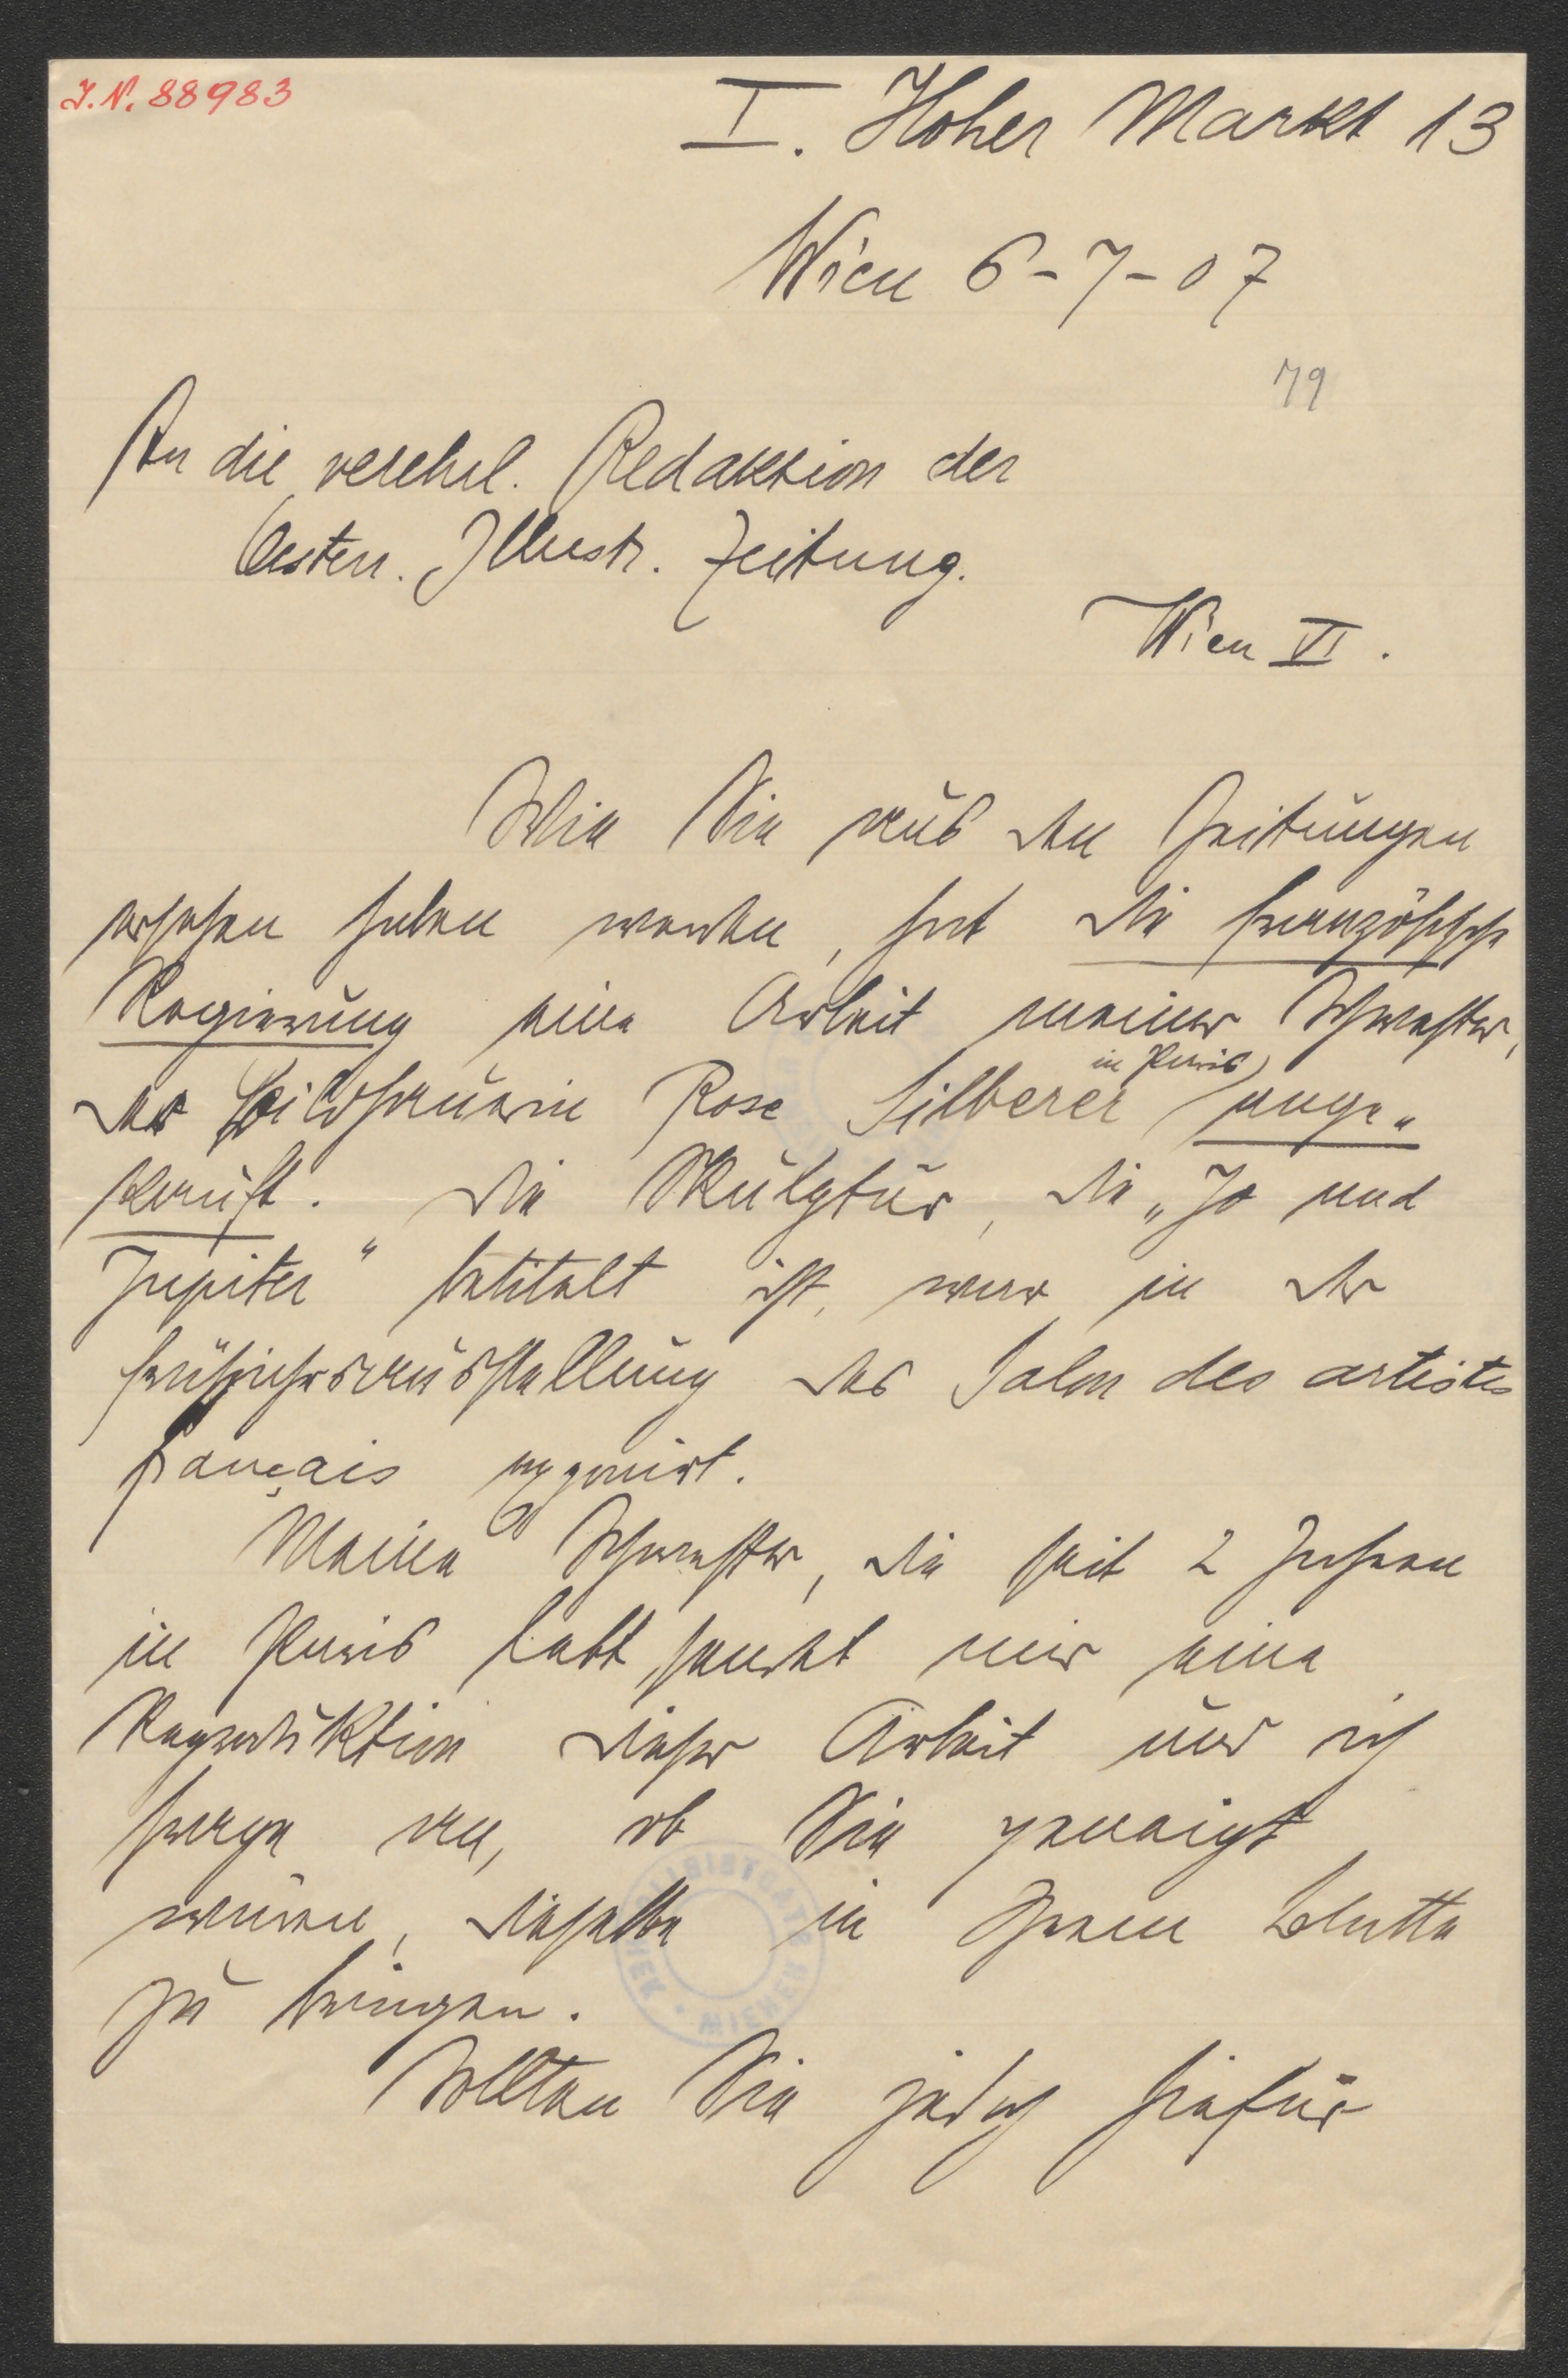 J.N. 88983
I. Hoher Markt 13
Wien 6-7-07
79
An die verehrl. Redaktion der
Oesterr. Illustr. Zeitung.
Wien VI.
Wie Sie aus den Zeitungen
ersehen haben werden, hat die französische
Regierung eine Arbeit meiner Schwester,
in Paris
der Bildhauerin Rose Silberer ange„
kauft. Die Skulptur, die „Jo und
Jupiter“ betitelt ist, war in der
Frühjahrsausstellung des Salon des artistes
français exponirt.
Meine Schwester, die seit 2 Jahren
in Paris lebt, sendet mir eine
Reproduktion dieser Arbeit und ich
frage an, ob Sie geneigt
wären, dieselbe in Ihrem Blatte
zu bringen.
Sollten Sie jedoch hiefür